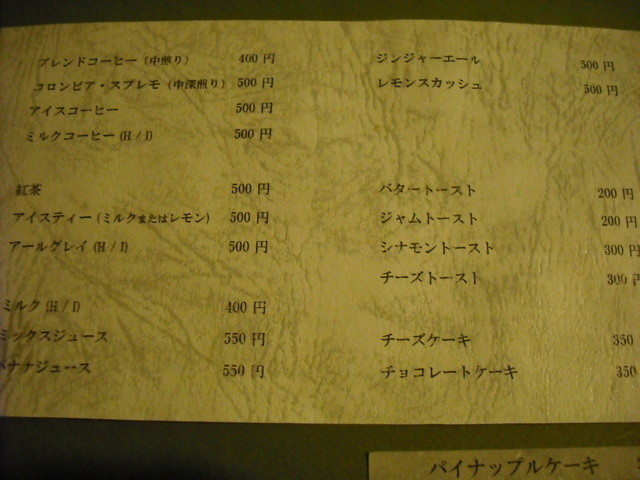 ブレンドコーヒー（中煎り） 400 円
コロンビア・スプレモ（中深煎り） 500 円
アイスコーヒー 500 円
ミルクコーヒー (H / I) 500 円
紅茶 500 円
アイスティー (ミルクまたはレモン) 500 円
アールグレイ (H / I) 500 円
ミルク (H / I) 400 円
ミックスジュース 550 円
バナナジュース 550 円
ジンジャーエール 500 円
レモンスカッシュ 500 円
バタートースト 200 円
ジャムトースト 200 円
シナモントースト 300 円
チーズトースト 300 円
チーズケーキ 350
チョコレートケーキ 350
パイナップルケーキ